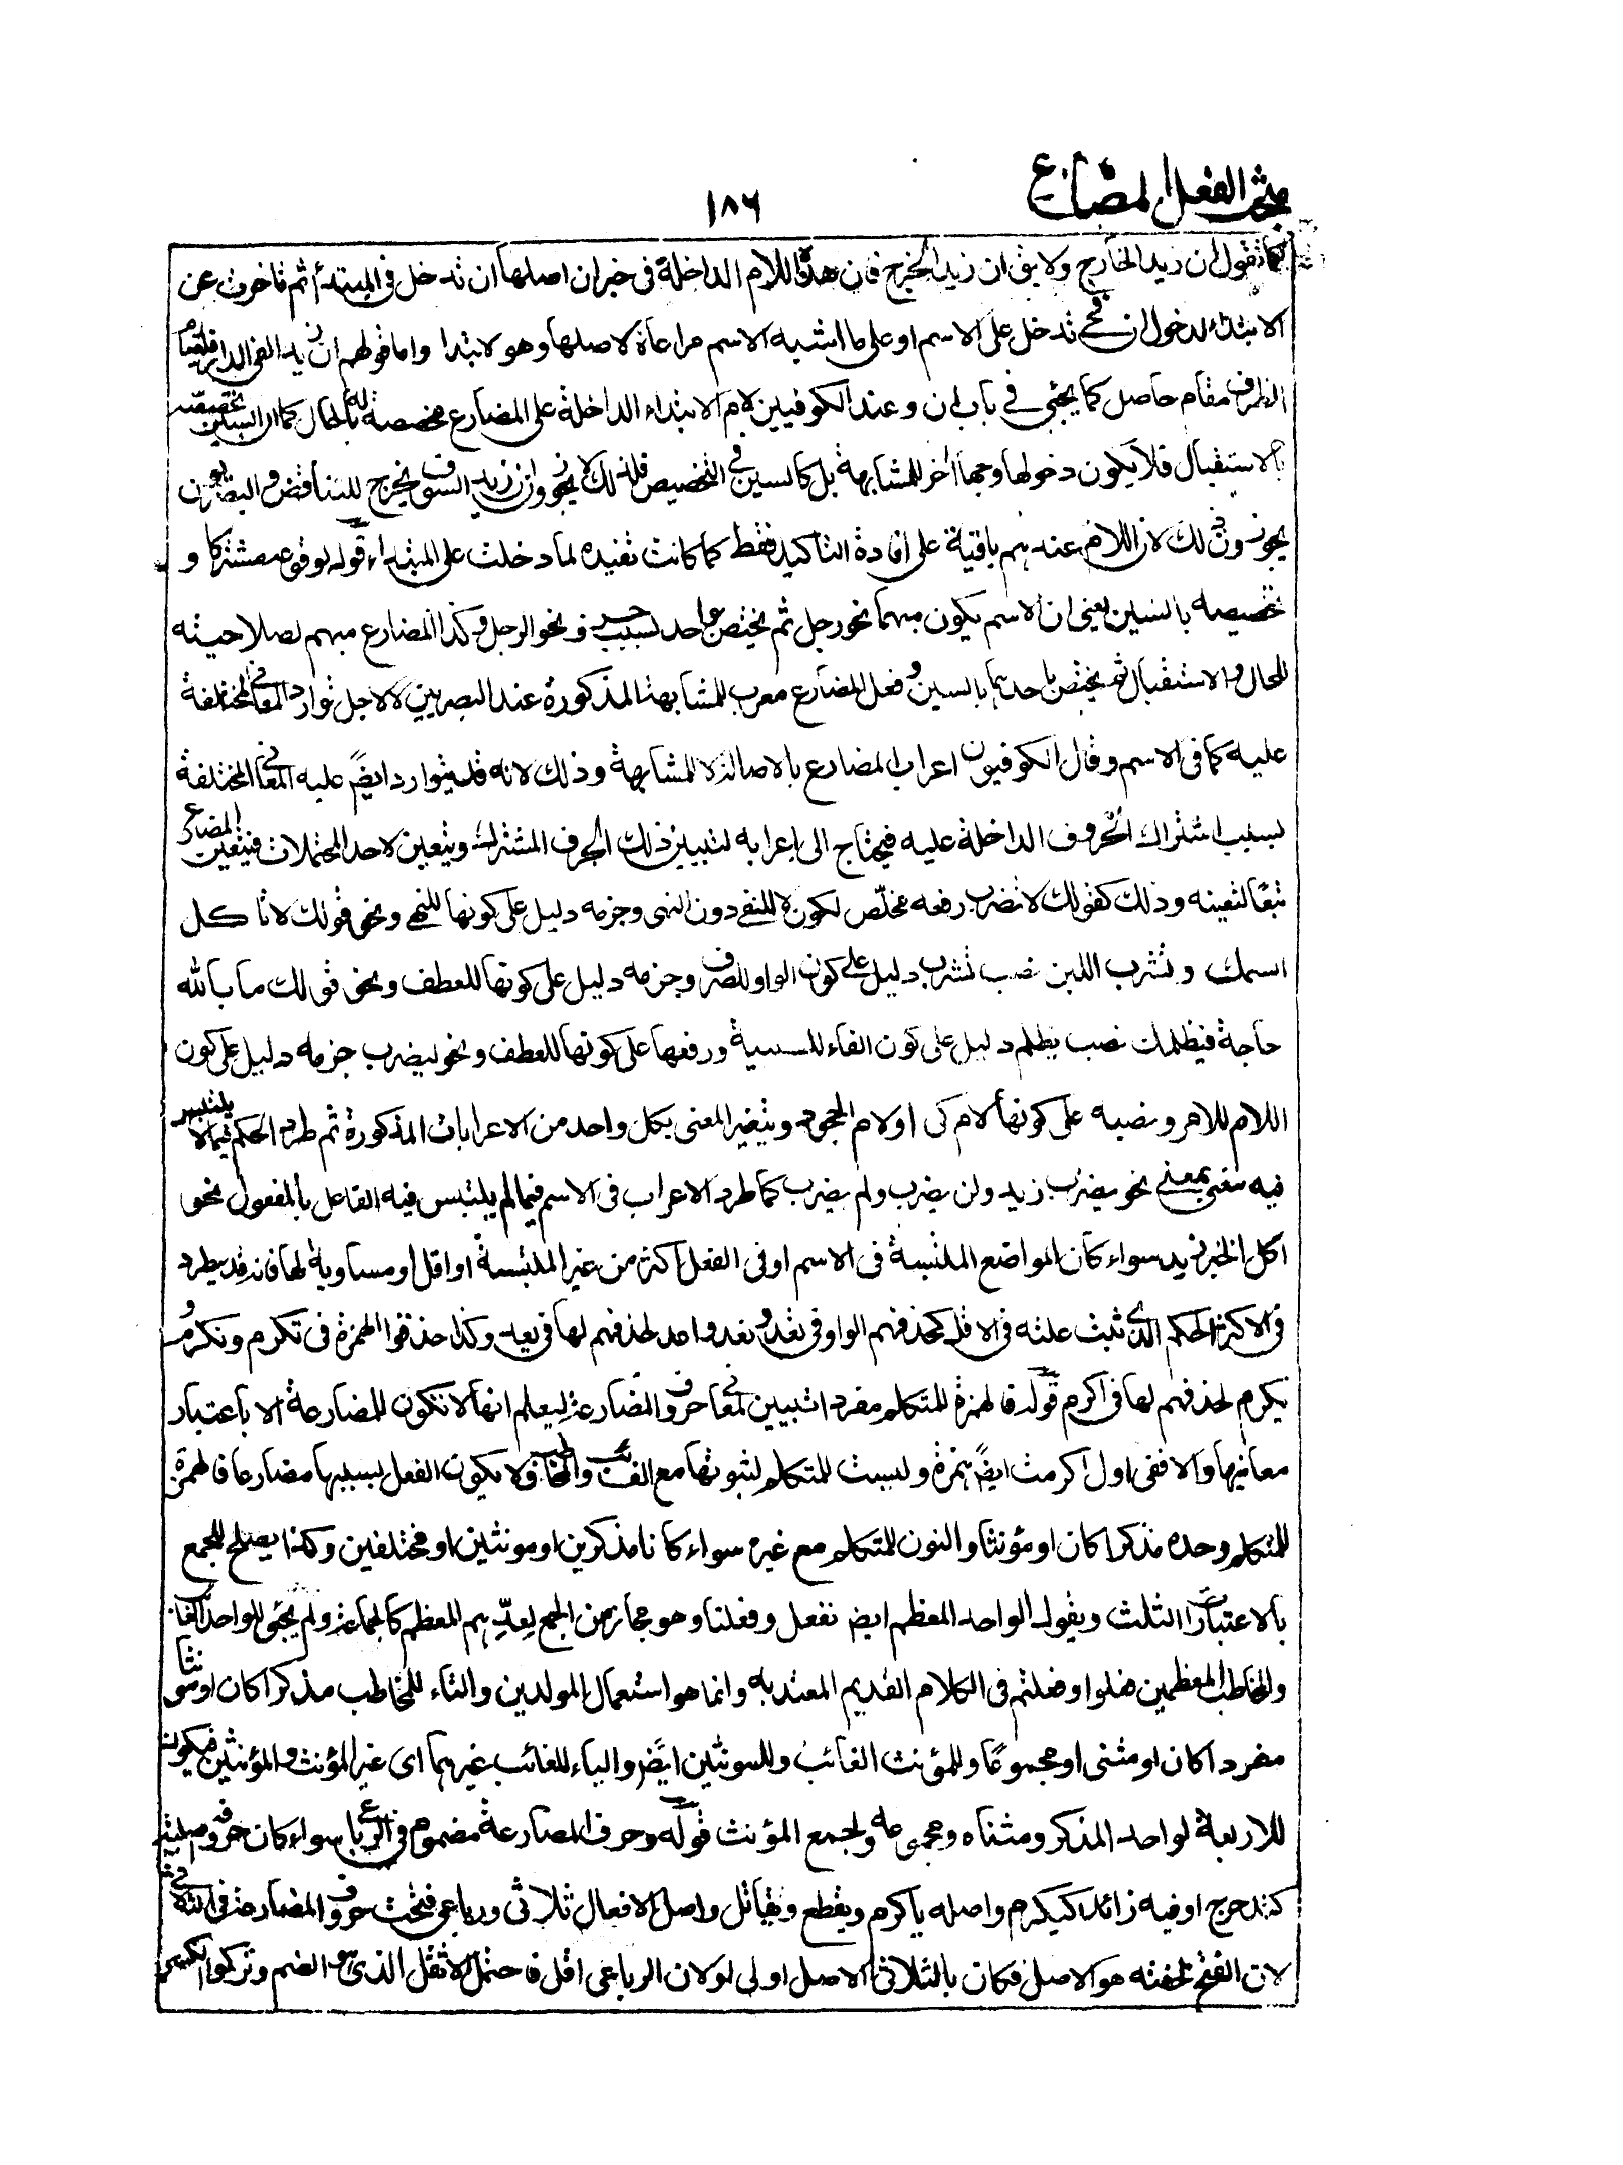 مبحث الفعل المضارع
١٨٦
كما تقول ان زيدا لخارج ولا يق ان زيدا لخرج فان هذه اللام الداخلة فى خبر ان اصلها ان تدخل فى المبتدأ ثم تاخرت عن
الابتداء لدخول ان فهى تدخل على الاسم او على ما اشبه الاسم مراعاة لاصلها وهو الابتدا واما قولهم ان زيدا لفى الدار فلقيام
الظرف مقام حاصل كما يجئ فى باب ان وعند الكوفيين لام الابتداء الداخلة على المضارع مخصصة له بالحال كما ان السين تخصيصه
بالاستقبال فلا يكون دخولها وجها آخر للمشابهة بل كالسين فى التخصيص فلذلك لا يجوزون ان زيدا لسوف يخرج للتناقض والبصريون
يجوزون ذلك لان اللام عندهم باقية على افادة التاكيد فقط كما كانت تفيده لما دخلت على المبتداء قوله لوقوعه مشتركا و
تخصيصه بالسين يعنى ان الاسم يكون مبهما نحو رجل ثم يختص بواحد بسبب حرف نحو الرجل وكذا المضارع مبهم لصلاحيته
للحال والاستقبال ثم يختص باحدهما بالسين وفعل المضارع معرب للمشابهة المذكورة عند البصريين لا لاجل توارد المعانى المختلفة
عليه كما فى الاسم وقال الكوفيون اعراب المضارع بالاصالة لا للمشابهة وذلك لانه قد يتوارد ايضً عليه المعانى المختلفة
بسبب اشتراك الحروف الداخلة عليه فيحتاج الى اعرابه لتبيين ذلك الحرف المشترك ويتعين لاحد المحتملات فيتعين المضارع
تبعا لتعينه وذلك كقولك لا تضرب رفعه مخلّص لكون لا للنفى دون النهى وجزمه دليل على كونها للنهى ونحو قولك لا تاكل
السمك وتشرب اللبن نصب تشرب دليل على كون الواو للصرف وجزمه دليل على كونها للعطف ونحو قولك ما بالله
حاجة فيظلمك نصب يظلم دليل على كون الفاء للسببية ورفعها على كونها للعطف ونحو ليضرب جزمه دليل على كون
اللام للامر ونصبه على كونها لام كى او لام الجحود ويتغير المعنى بكل واحد من الاعرابات المذكورة ثم طرد الحكم فيما لا يلتبس
فيه معنى بمعنى نحو يضرب زيد ولن يضرب ولم يضرب كما طرد الاعراب فى الاسم فيما لم يلتبس فيه الفاعل بالمفعول نحو
اكل الخبز زيد سواء كان المواضع الملتبسة فى الاسم او فى الفعل اكثر من غير الملتبسة او اقل او مساوية لها فانه قد يطرد
فى الاكثر الحكم الذى ثبت علته فى الاقل كحذفهم الواو فى تعد ونعد واعد لحذفهم لها فى يعد وكذا حذفوا الهمزة فى تكرم ونكرم و
يكرم لحذفهم لها فى اكرم قوله فالهمزة للمتكلم مفردا تبيين لمعانى حروف المضارعة ليعلم انها لا تكون للمضارعة الا باعتبار
معانيها والا ففى اول اكرمت ايضً همزة وليست للمتكلم لثبوتها مع الغائب والمخاطب فلا يكون الفعل بسببها مضارعا فالهمزة
للمتكلم وحده مذكرا كان او مؤنثا والنون للمتكلم مع غيره سواء كانا مذكرين او مونثين او مختلفين وكذا يصلح للجمع
بالاعتبارات الثلث ويقول الواحد المعظم ايض نفعل وفعلنا وهو مجاز من الجمع لعدّهم المعظم كالجماعة ولم يجئ للواحد الغائب
والمخاطب المعظمين فعلوا وفعلتم فى الكلام القديم المعتد به وانما هو استعمال المولدين والتاء للمخاطب مذكرا كان او مونثا
مفردا كان او مثنى او مجموعًا وللمؤنث الغائب وللمونثين ايضً والياء للغائب غيرهما اى غير المؤنث والمؤنثين فيكون
للاربعة لواحد المذكر ومثناه ومجموعه ولجمع المؤنث قوله وحرف المضارعة مضموم فى الرباعى سواء كان حروفه اصلية
كيدحرج او فيه زائد كيكرم واصله ياكرم ويقطع ويقاتل واصل الافعال ثلاثى ورباعى فتحت حروف المضارعة فى الثلاثى
لان الفتح لخفته هو الاصل فكان بالثلاثى الاصل اولى او لان الرباعى اقل فاحتمل الاثقل الذى هو الضم وتركوا الكسر